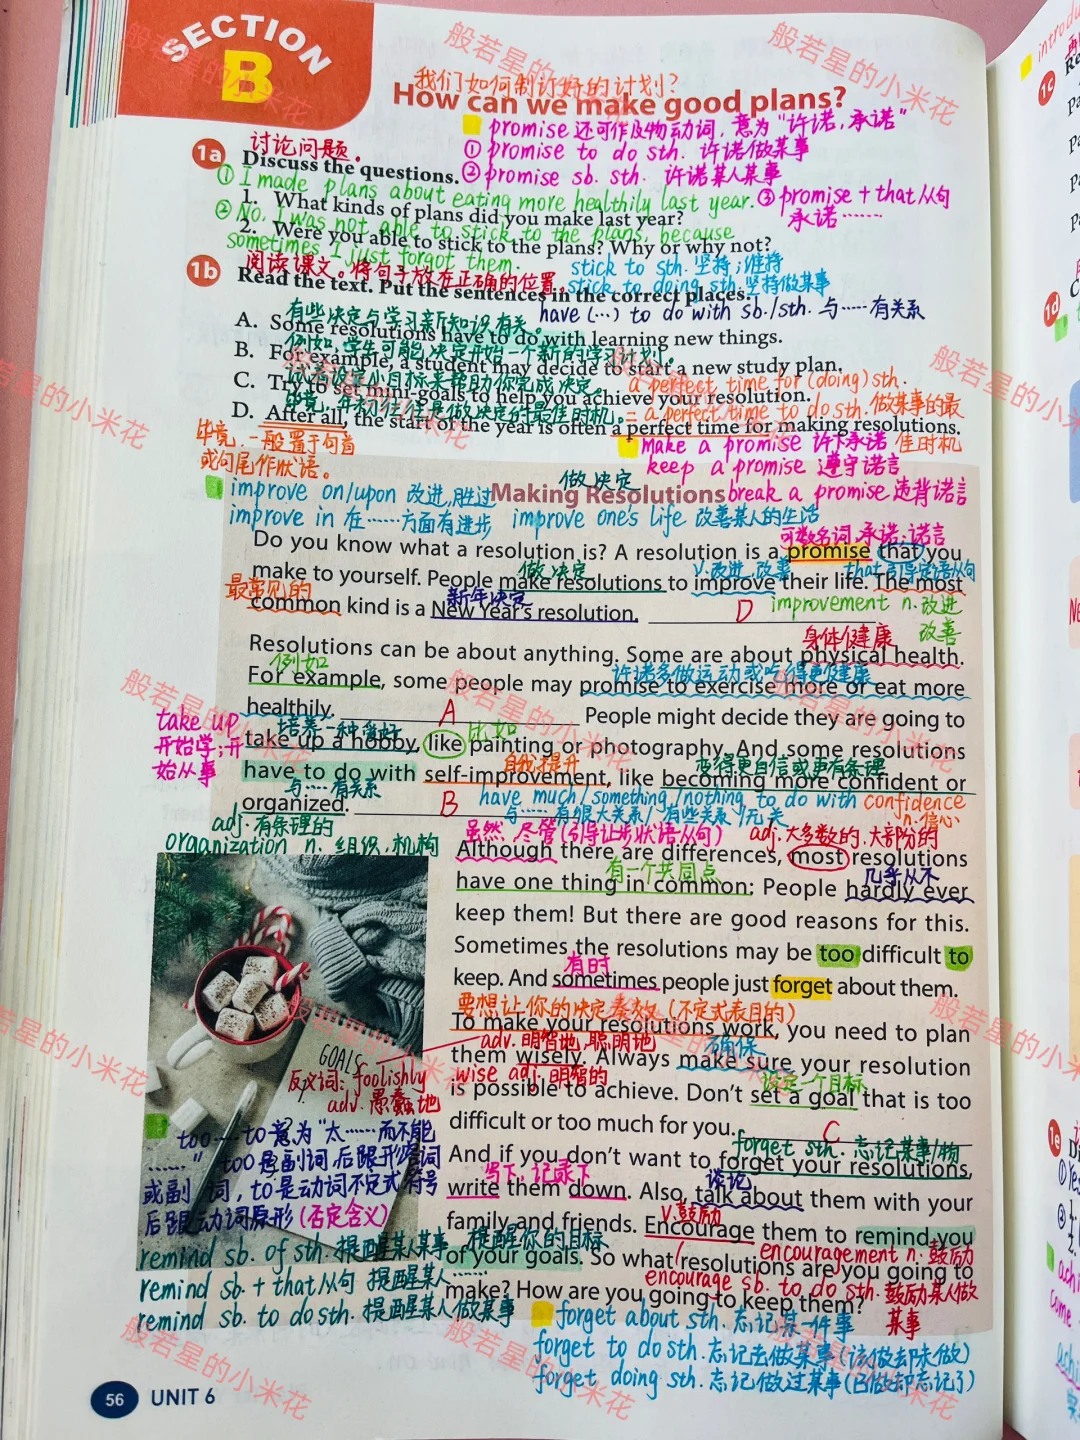 SECTION
B
我们如何制订好的计划？
How can we make good plans?
promise 还可作及物动词，意为“许诺，承诺”
① promise to do sth. 许诺做某事
② promise sb. sth. 许诺某人某事
③ promise + that从句
承诺······
讨论问题。
1a Discuss the questions.
① I made plans about eating more healthily last year.
1. What kinds of plans did you make last year?
② No. I was not able to stick to the plans, because
2. Were you able to stick to the plans? Why or why not?
sometimes I just forgot them.
stick to sth. 坚持；维持
stick to doing sth. 坚持做某事
阅读课文。将句子放在正确的位置。
1b Read the text. Put the sentences in the correct places.
have (···) to do with sb./sth. 与······有关系
有些决定与学习新知识有关。
A. Some resolutions have to do with learning new things.
例如，学生可能决定开始一个新的学习计划。
B. For example, a student may decide to start a new study plan.
试着设定小目标来帮助你完成决定。
C. Try to set mini-goals to help you achieve your resolution.
a perfect time for (doing) sth.
= a perfect time to do sth. 做某事的最
佳时机
毕竟，年初往往是做决定的最佳时机。
D. After all, the start of the year is often a perfect time for making resolutions.
毕竟，一般置于句首
或句尾作状语。
make a promise 许下承诺
keep a promise 遵守诺言
break a promise 违背诺言
做决定
Making Resolutions
improve on/upon 改进，胜过
improve in 在······方面有进步 improve one's life 改善某人的生活
可数名词，承诺；诺言
Do you know what a resolution is? A resolution is a promise that you
做决定 v.改进，改善 that引导定语从句
make to yourself. People make resolutions to improve their life. The most
最常见的 新年决定
common kind is a New Year's resolution. D
improvement n. 改进
改善
身体健康
Resolutions can be about anything. Some are about physical health.
例如 许诺多做运动或吃得更健康
For example, some people may promise to exercise more or eat more
healthily. A People might decide they are going to
take up
开始学；开
始从事
培养一种爱好 比如
take up a hobby, like painting or photography. And some resolutions
自我提升 变得更自信或更有条理
have to do with self-improvement, like becoming more confident or
与······有关系
organized. B
have much/something/nothing to do with confidence
与······有很大关系/有些关系/无关 n. 信心
adj. 有条理的
organization n. 组织，机构
虽然，尽管(引导让步状语从句) adj. 大多数的，大部分的
Although there are differences, most resolutions
有一个共同点 几乎从不
have one thing in common: People hardly ever
keep them! But there are good reasons for this.
Sometimes the resolutions may be too difficult to
有时
keep. And sometimes people just forget about them.
要想让你的决定奏效 (不定式表目的)
To make your resolutions work, you need to plan
adv. 明智地，聪明地 确保
them wisely. Always make sure your resolution
wise adj. 明智的
设定一个目标
is possible to achieve. Don't set a goal that is too
difficult or too much for you. C
forget sth. 忘记某事/物
And if you don't want to forget your resolutions,
写下，记录下 谈论
write them down. Also, talk about them with your
v.鼓励
family and friends. Encourage them to remind you
提醒你的目标
of your goals. So what resolutions are you going to
encouragement n. 鼓励
encourage sb. to do sth. 鼓励某人做
某事
make? How are you going to keep them?
GOALS
反义词：foolishly
adv. 愚蠢地
too ··· to 意为“太······而不能
······” too 是副词，后跟形容词
或副词，to 是动词不定式符号
后跟动词原形 (否定含义)
remind sb. of sth. 提醒某人某事
remind sb. + that从句 提醒某人······
remind sb. to do sth. 提醒某人做某事
forget about sth. 忘记某一件事
forget to do sth. 忘记去做某事 (该做却未做)
forget doing sth. 忘记做过某事 (已做却忘记了)
56 UNIT 6
般若星的小米花
1c
1d
1e